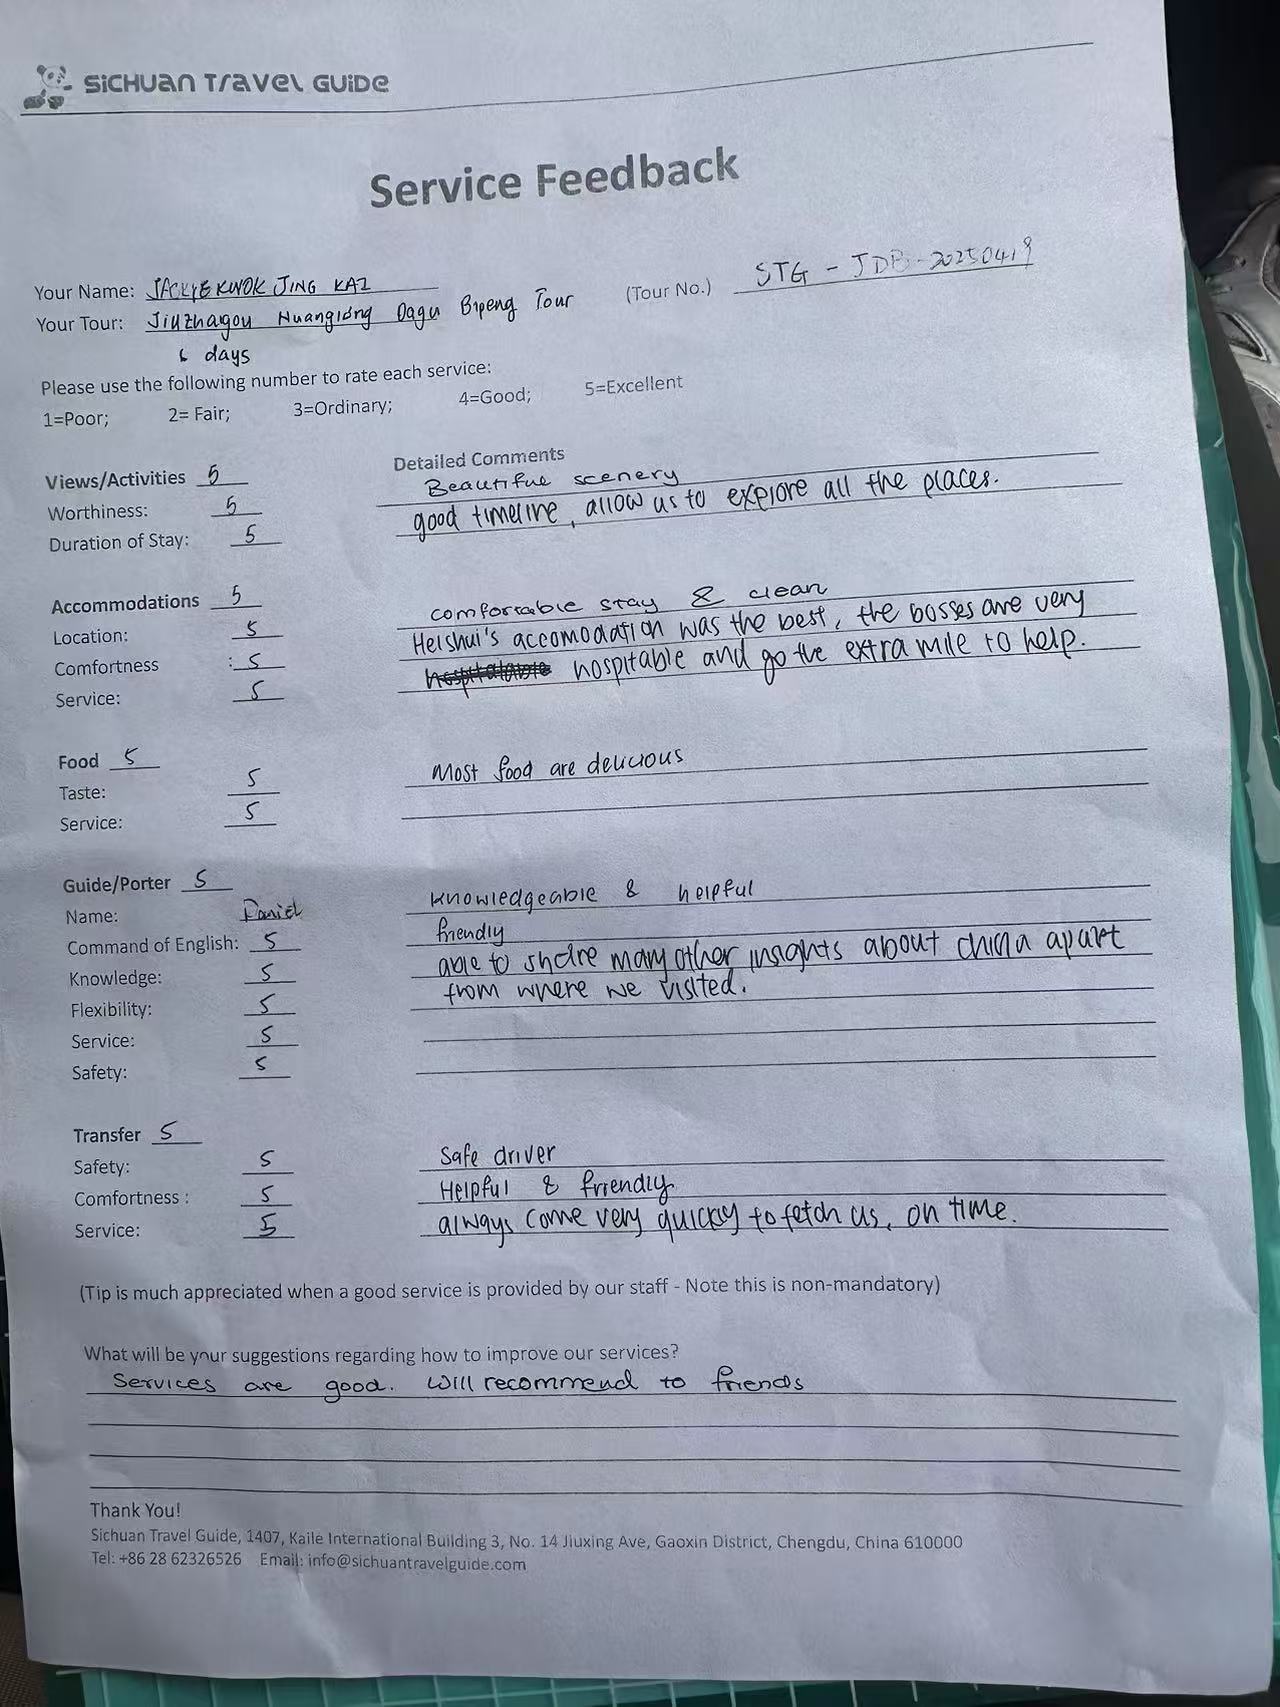 SiCHUAN TRAVEL GUiDE
Service Feedback
Your Name: JACKYE KWOK JING KAI (Tour No.) STG - JDB-20250419
Your Tour: Jiuzhaigou Huanglong Dagu Bipeng Tour
6 days
Please use the following number to rate each service:
1=Poor; 2= Fair; 3=Ordinary; 4=Good; 5=Excellent
Views/Activities 5 Detailed Comments
Beautiful scenery
Worthiness: 5 good timeline, allow us to explore all the places.
Duration of Stay: 5
Accommodations 5 comfortable stay & clean
Location: 5 Heishui's accomodation was the best, the bosses are very
Comfortness : 5 hospitable and go the extra mile to help.
Service: 5
Food 5 Most food are delicious
Taste: 5
Service: 5
Guide/Porter 5 knowledgeable & helpful
Name: Daniel friendly
Command of English: 5 able to share many other insights about china apart
Knowledge: 5 from where we visited.
Flexibility: 5
Service: 5
Safety: 5
Transfer 5 Safe driver
Safety: 5 Helpful & friendly
Comfortness : 5 always come very quickly to fetch us, on time.
Service: 5
(Tip is much appreciated when a good service is provided by our staff - Note this is non-mandatory)
What will be your suggestions regarding how to improve our services?
Services are good. Will recommend to friends
Thank You!
Sichuan Travel Guide, 1407, Kaile International Building 3, No. 14 Jiuxing Ave, Gaoxin District, Chengdu, China 610000
Tel: +86 28 62326526 Email: info@sichuantravelguide.com